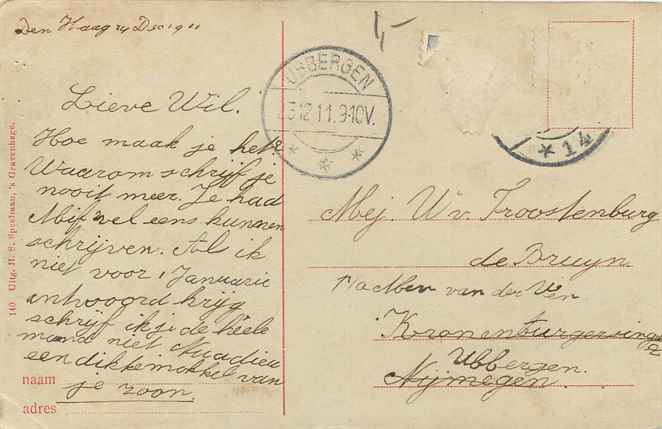 Den Haag 24 Dec 1911
Lieve Wil.
Hoe maak je het?
Waarom schrijf je
nooit meer. Je had
Mij wel eens kunnen
schrijven. Als ik
niet voor 1 Januarie
antwoord krijg
schrijf ik je de heele
mama niet Nu adieu
een dikke mokkel van
je zoon.
naam
adres
140 Uitg. H. S. Speelman, 's Gravenhage.
UBBERGEN
12 11. 9-10V.
14
Mej. W v. Troostenburg
de Bruyn.
van der Ven
Kronenburgersingel
Ubbergen.
Nijmegen.